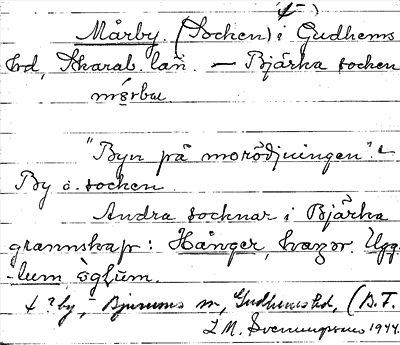 Mårby. (Socken) i Gudhems
hd, Skarab. län. — Bjärka socken
mɜrbu.
"Byn på moröjningen".
By o. socken
Andra socknar i Bjärka
grannskap: Hånger, hɑŋər. Ugg-
-lum, öglum.
+ ? by, Bjurums sn, Gudhems hd, (B.F.
L M. Svenungsson 1944.